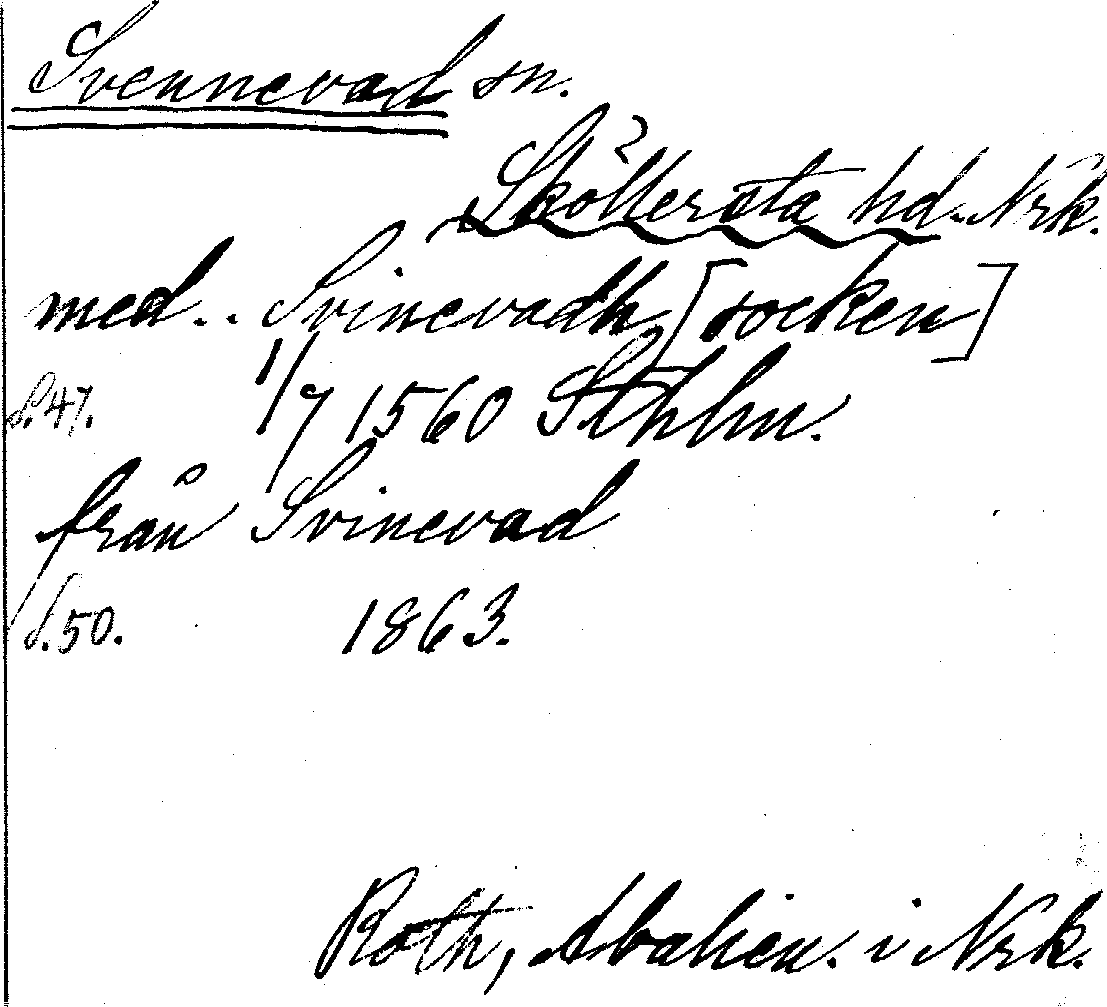 Svennevad sn.
Sköllersta hd. Nrk.
med.. Svinevadh [socken]
s.47. 1/7 1560 Sthlm.
från Svinevad
s.50. 1863.
Roth, Abalien. i Nrk.